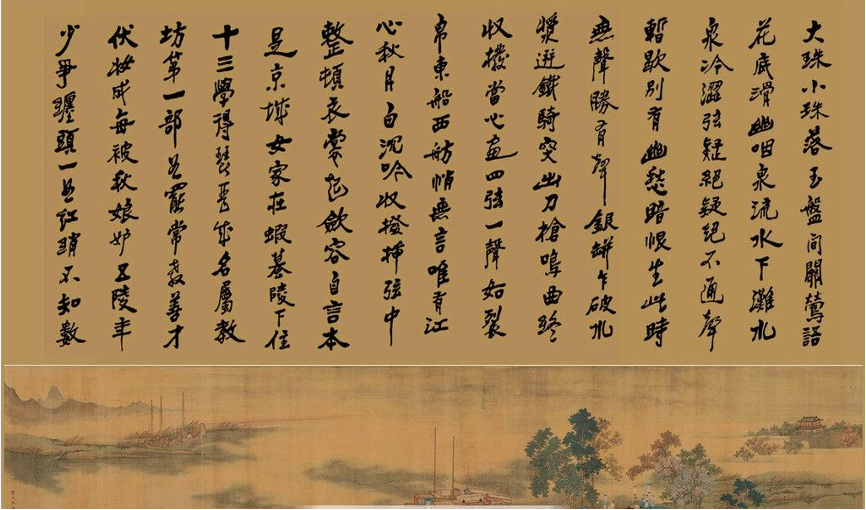 大珠小珠落玉盤間關鶯語
花底滑幽咽泉流水下灘水
泉冷澀弦疑絕疑絕不通聲
暫歇別有幽愁暗恨生此時
無聲勝有聲銀缾乍破水
漿迸鐵騎突出刀槍鳴曲終
收撥當心畫四弦一聲如裂
帛東船西舫悄無言唯有江
心秋月白沉吟收撥插弦中
整頓衣裳起斂容自言本
是京城女家在蝦蟇陵下住
十三學得琵琶成名屬教
坊第一部曲罷常教善才
伏妝成每被秋娘妒五陵年
少爭纏頭一曲紅綃不知數